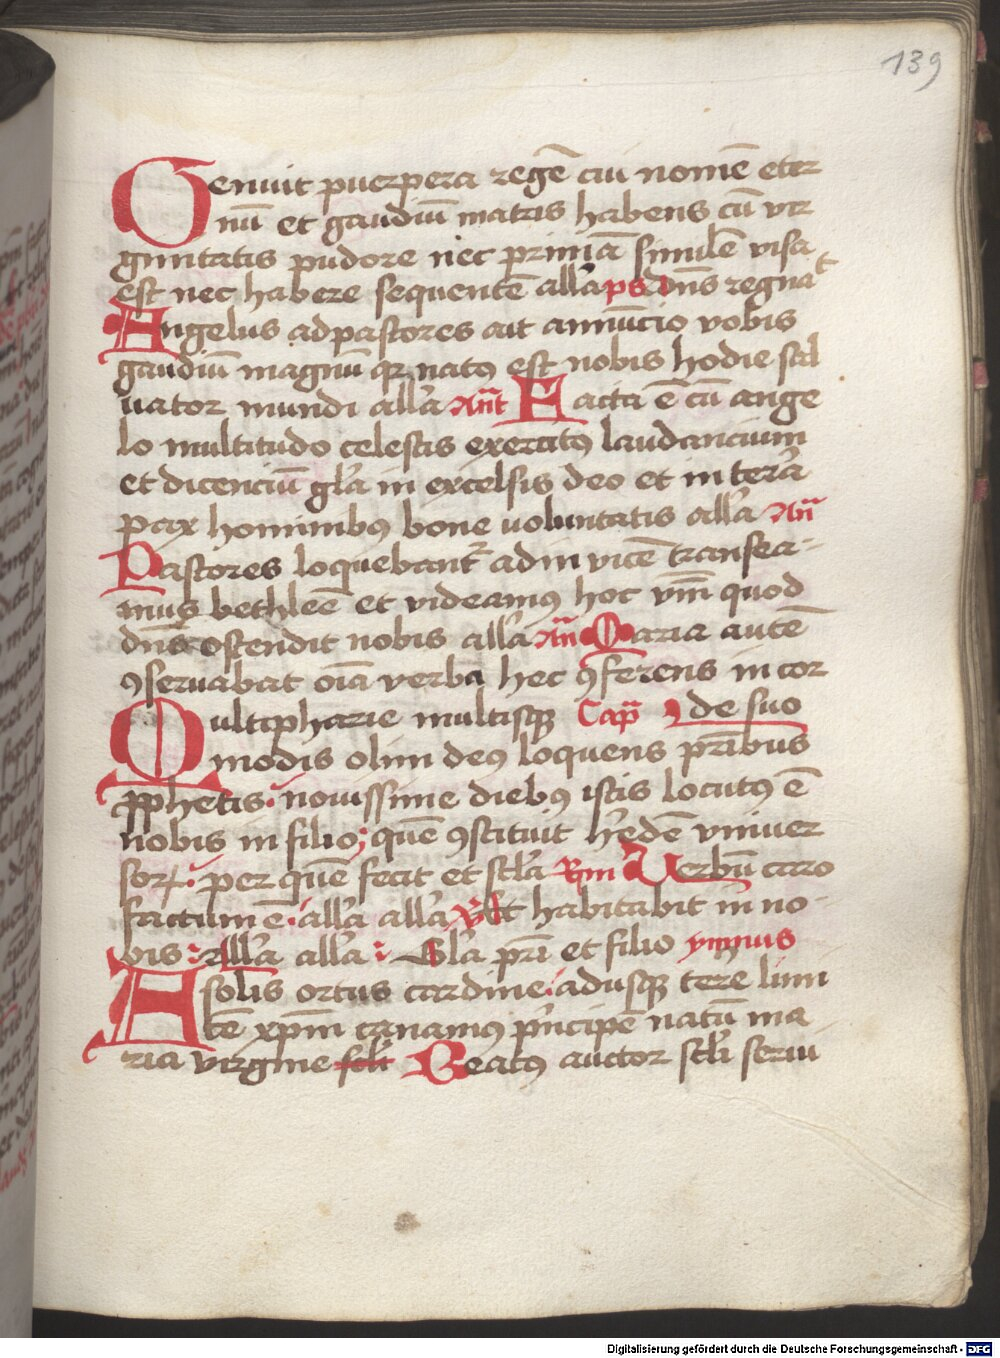 139
Genuit puerpera regē cui nomē eter
nū et gaudiū matris habens cū vir
ginitatis pudore nec primā similē visa
est nec habere sequentē all'a ps Dn̄s regnat
Angelus ad pastores ait annūcio vobis
gaudiū magnū qr natꝯ est nobis hodie sal
uator mundi all'a Ant Facta ē cū ange
lo multitudo celestis exercitꝯ laudancium
et dicenciū gl'a in excelsis deo et in terra
pax hominibꝯ bone uoluntatis all'a An
Pastores loquebant' ad in vicē transea-
mus bethleē et videamꝯ hoc vm̄ quod
dn̄s ostendit nobis all'a An Maria autē
ꝯseruabat oīa verba hec ꝯferens in cor
Multipharie multisqꝫ Cap de suo
modis olim deꝯ loquens pr̄ibus
pphetis. nouissime diebꝯ istis locutꝯ ē
nobis in filio; quē ꝯstituit h'edē vniuer
soꝝ. per quē fecit et sc̄la Rm Verbū caro
factum ē. all'a all'a V Et habitabit in no-
bis: All'a all'a: Gl'a pr̄i et filio ympnus
A solis ortus cardine. adusqꝫ tere limi
tē xp̄m canamꝯ p'ncipē natū ma
ria virgine Beatꝯ auctor sc̄li serui
Digitalisierung gefördert durch die Deutsche Forschungsgemeinschaft - DFG